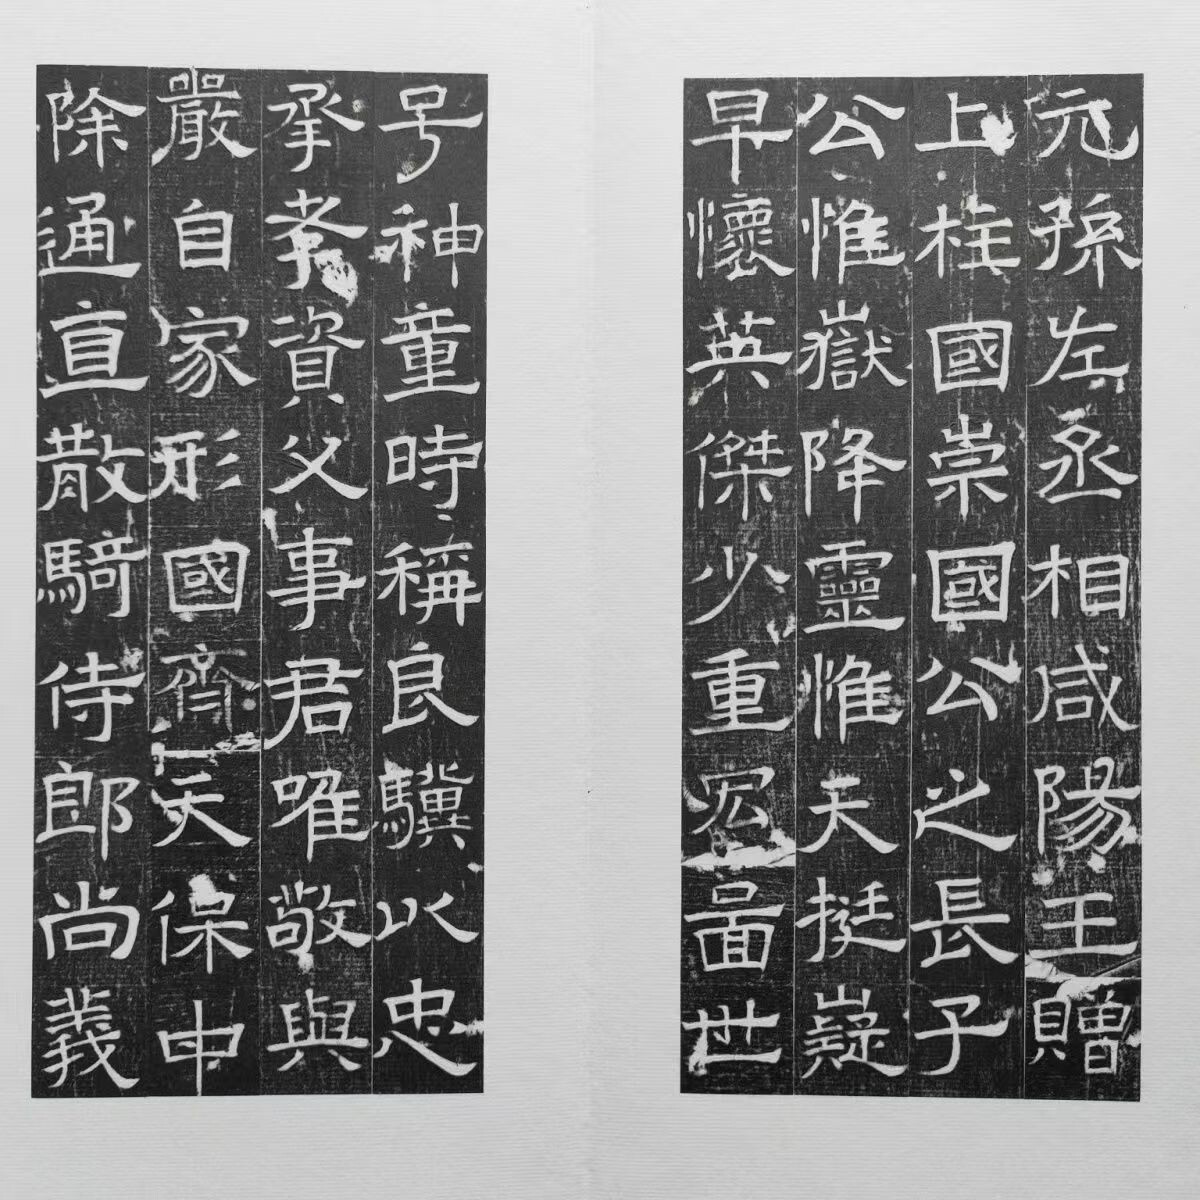 元孫左丞相咸陽王贈
上柱國崇國公之長子
公惟嶽降靈惟天挺嶷
早懷英傑少重宏圖世
号神童時稱良驥以忠
承孝資父事君唯敬與
嚴自家形國齊天保中
除通直散騎侍郎尚義